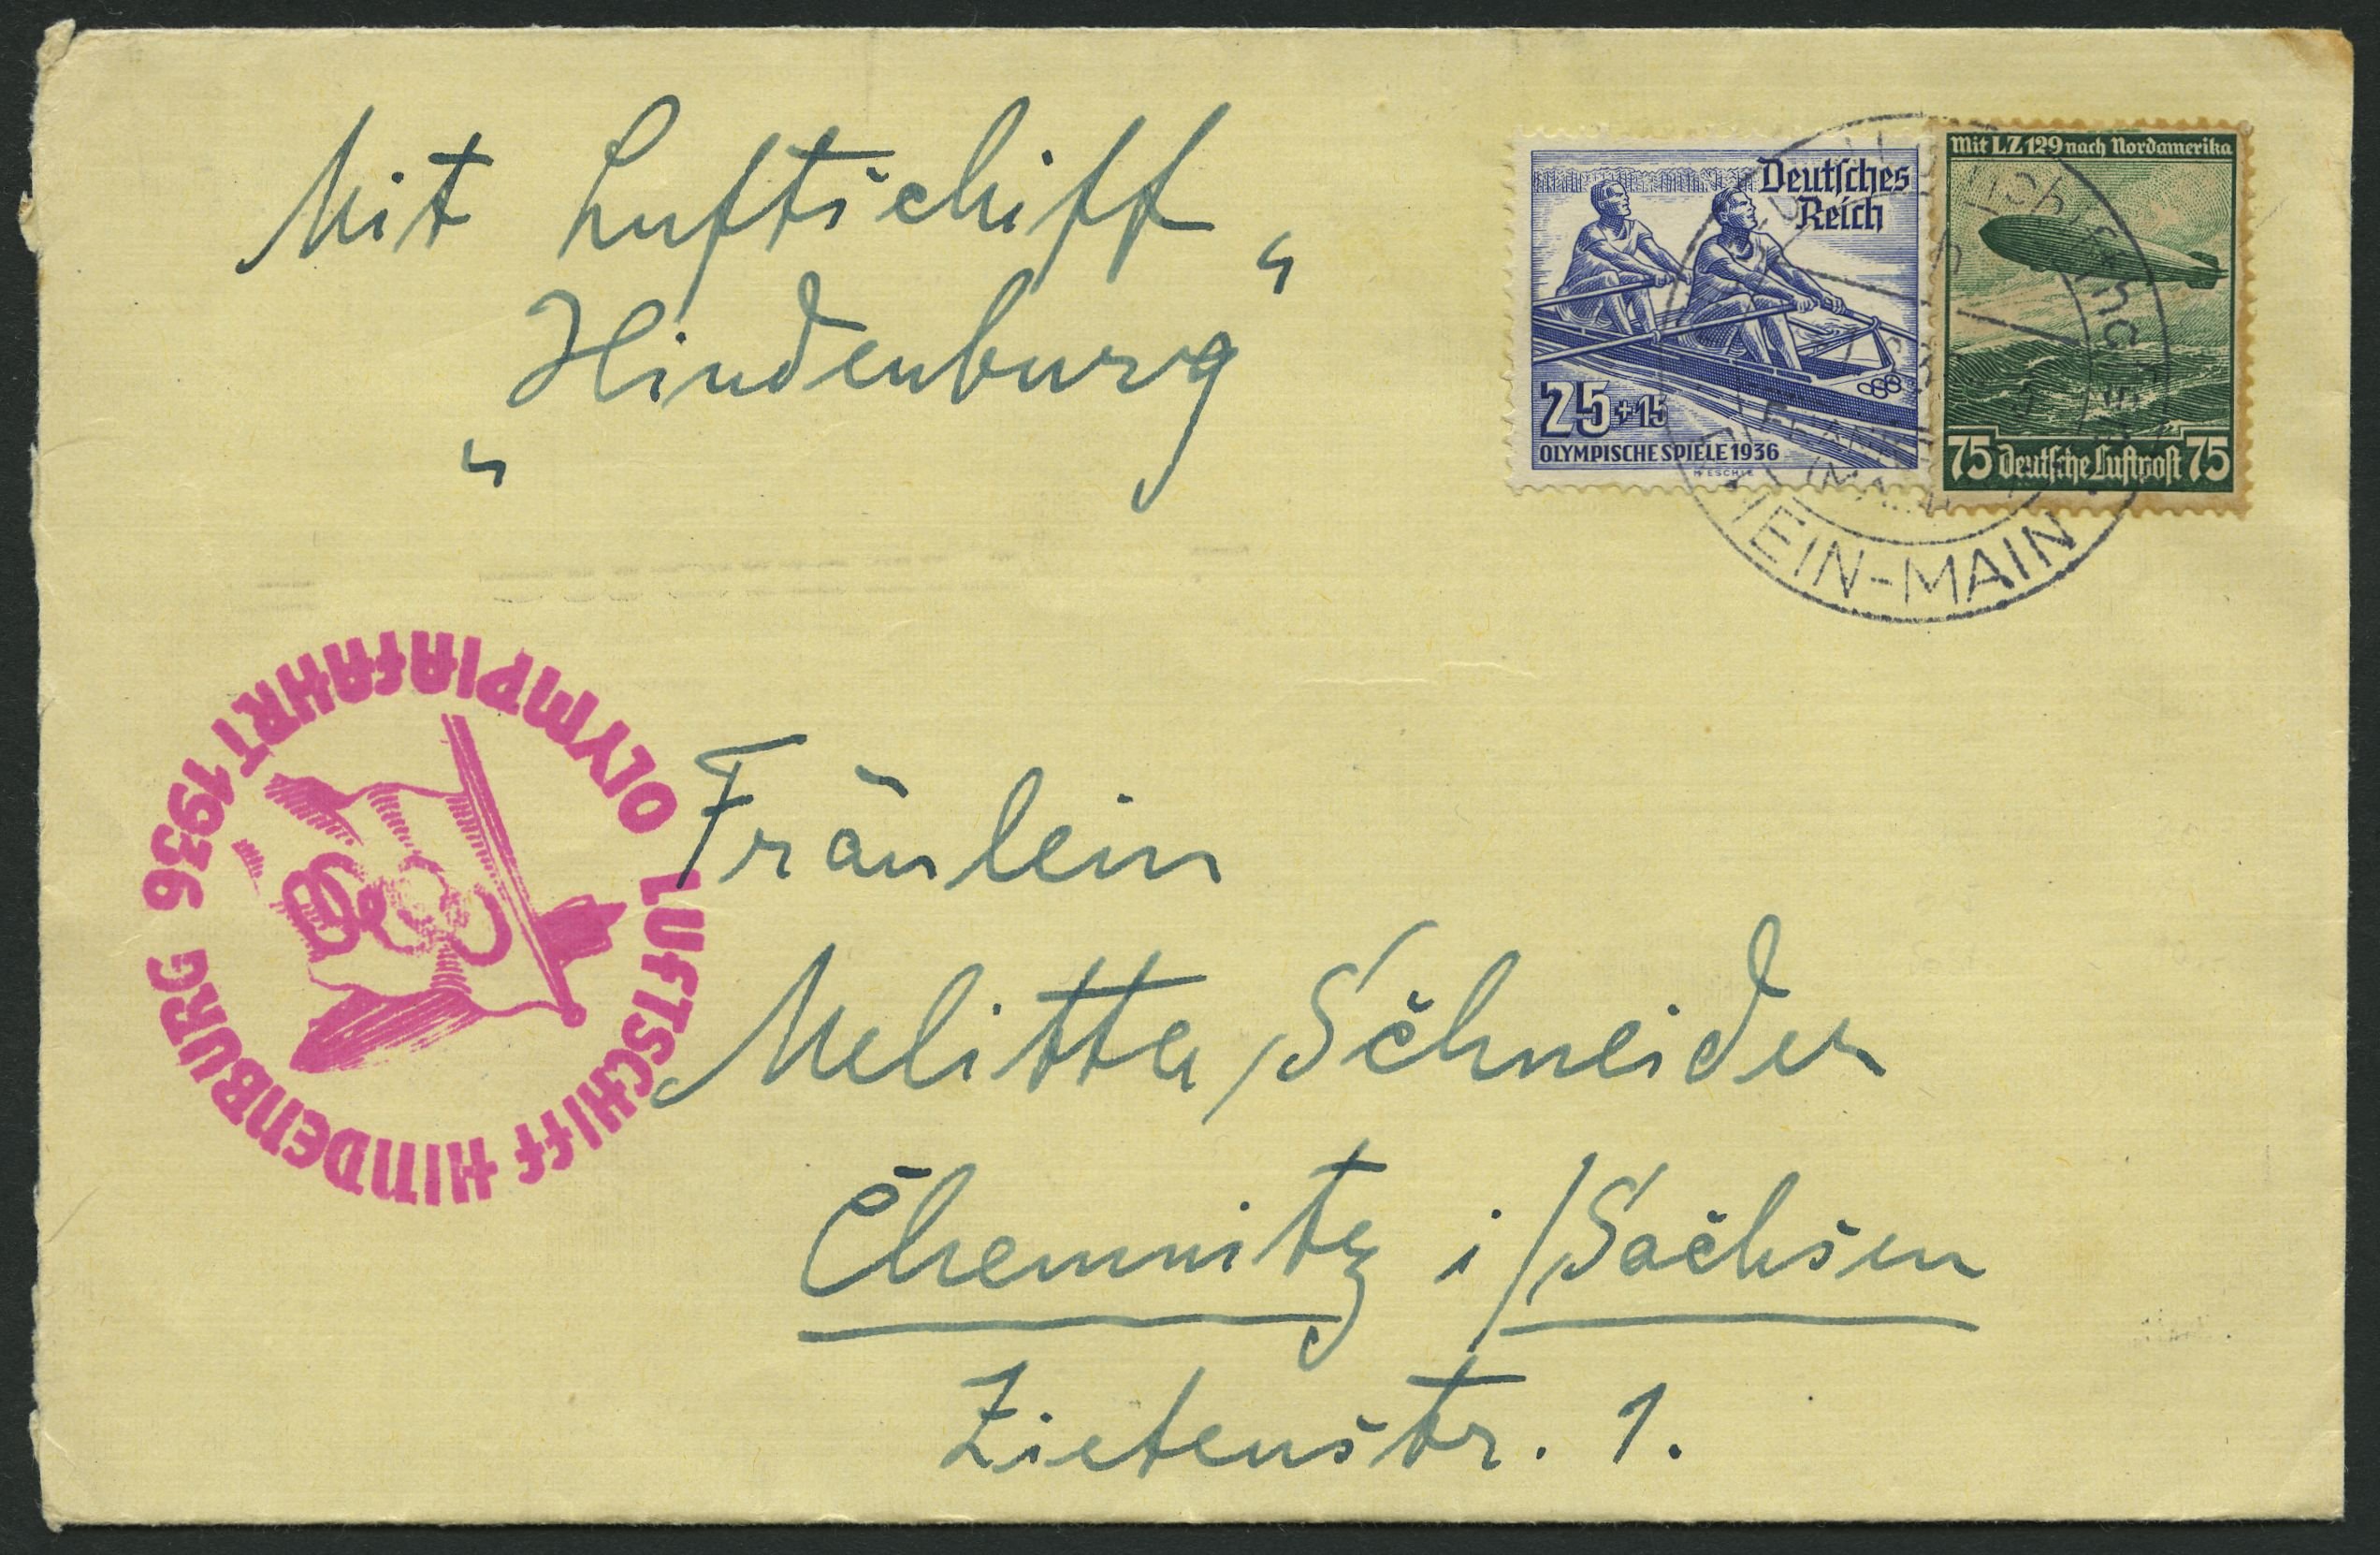 Mit Luftschiff
„Hindenburg“
Deutsches
Reich
25+15
OLYMPISCHE SPIELE 1936
M. ESCHLE
Mit LZ 129 nach Nordamerika
75 Deutsche Luftpost 75
RHEIN-MAIN
LUFTSCHIFF HINDENBURG
OLYMPIAFAHRT 1936
Fräulein
Melitta Schneider
Chemnitz i/Sachsen
Zietenstr. 1.